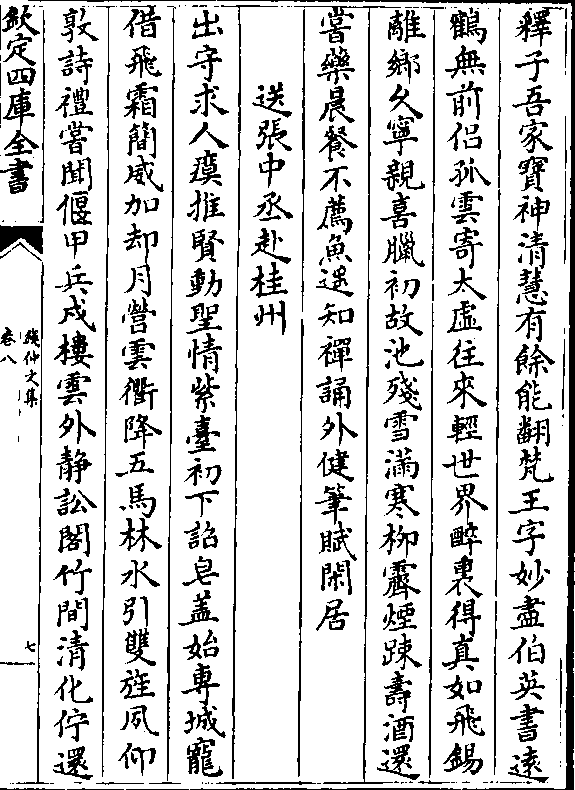 釋子吾家寶神清慧有餘能翻梵王字妙盡伯英書遠
鶴無前侶孤雲寄太虛往來輕世界醉裏得真如飛錫
離鄉久寧親喜臘初故池殘雪滿寒柳霽煙踈壽酒還
嘗藥晨餐不薦魚遥知禪誦外健筆賦閑居
送張中丞赴桂州
出守求人瘼推賢動聖情紫臺初下詔皂盖始專城寵
借飛霜簡威加却月營雲衢降五馬林水引雙旌夙仰
敦詩禮嘗聞偃甲兵戍樓雲外静訟閣竹間清化佇還
欽定四庫全書
錢仲文集
卷八
七